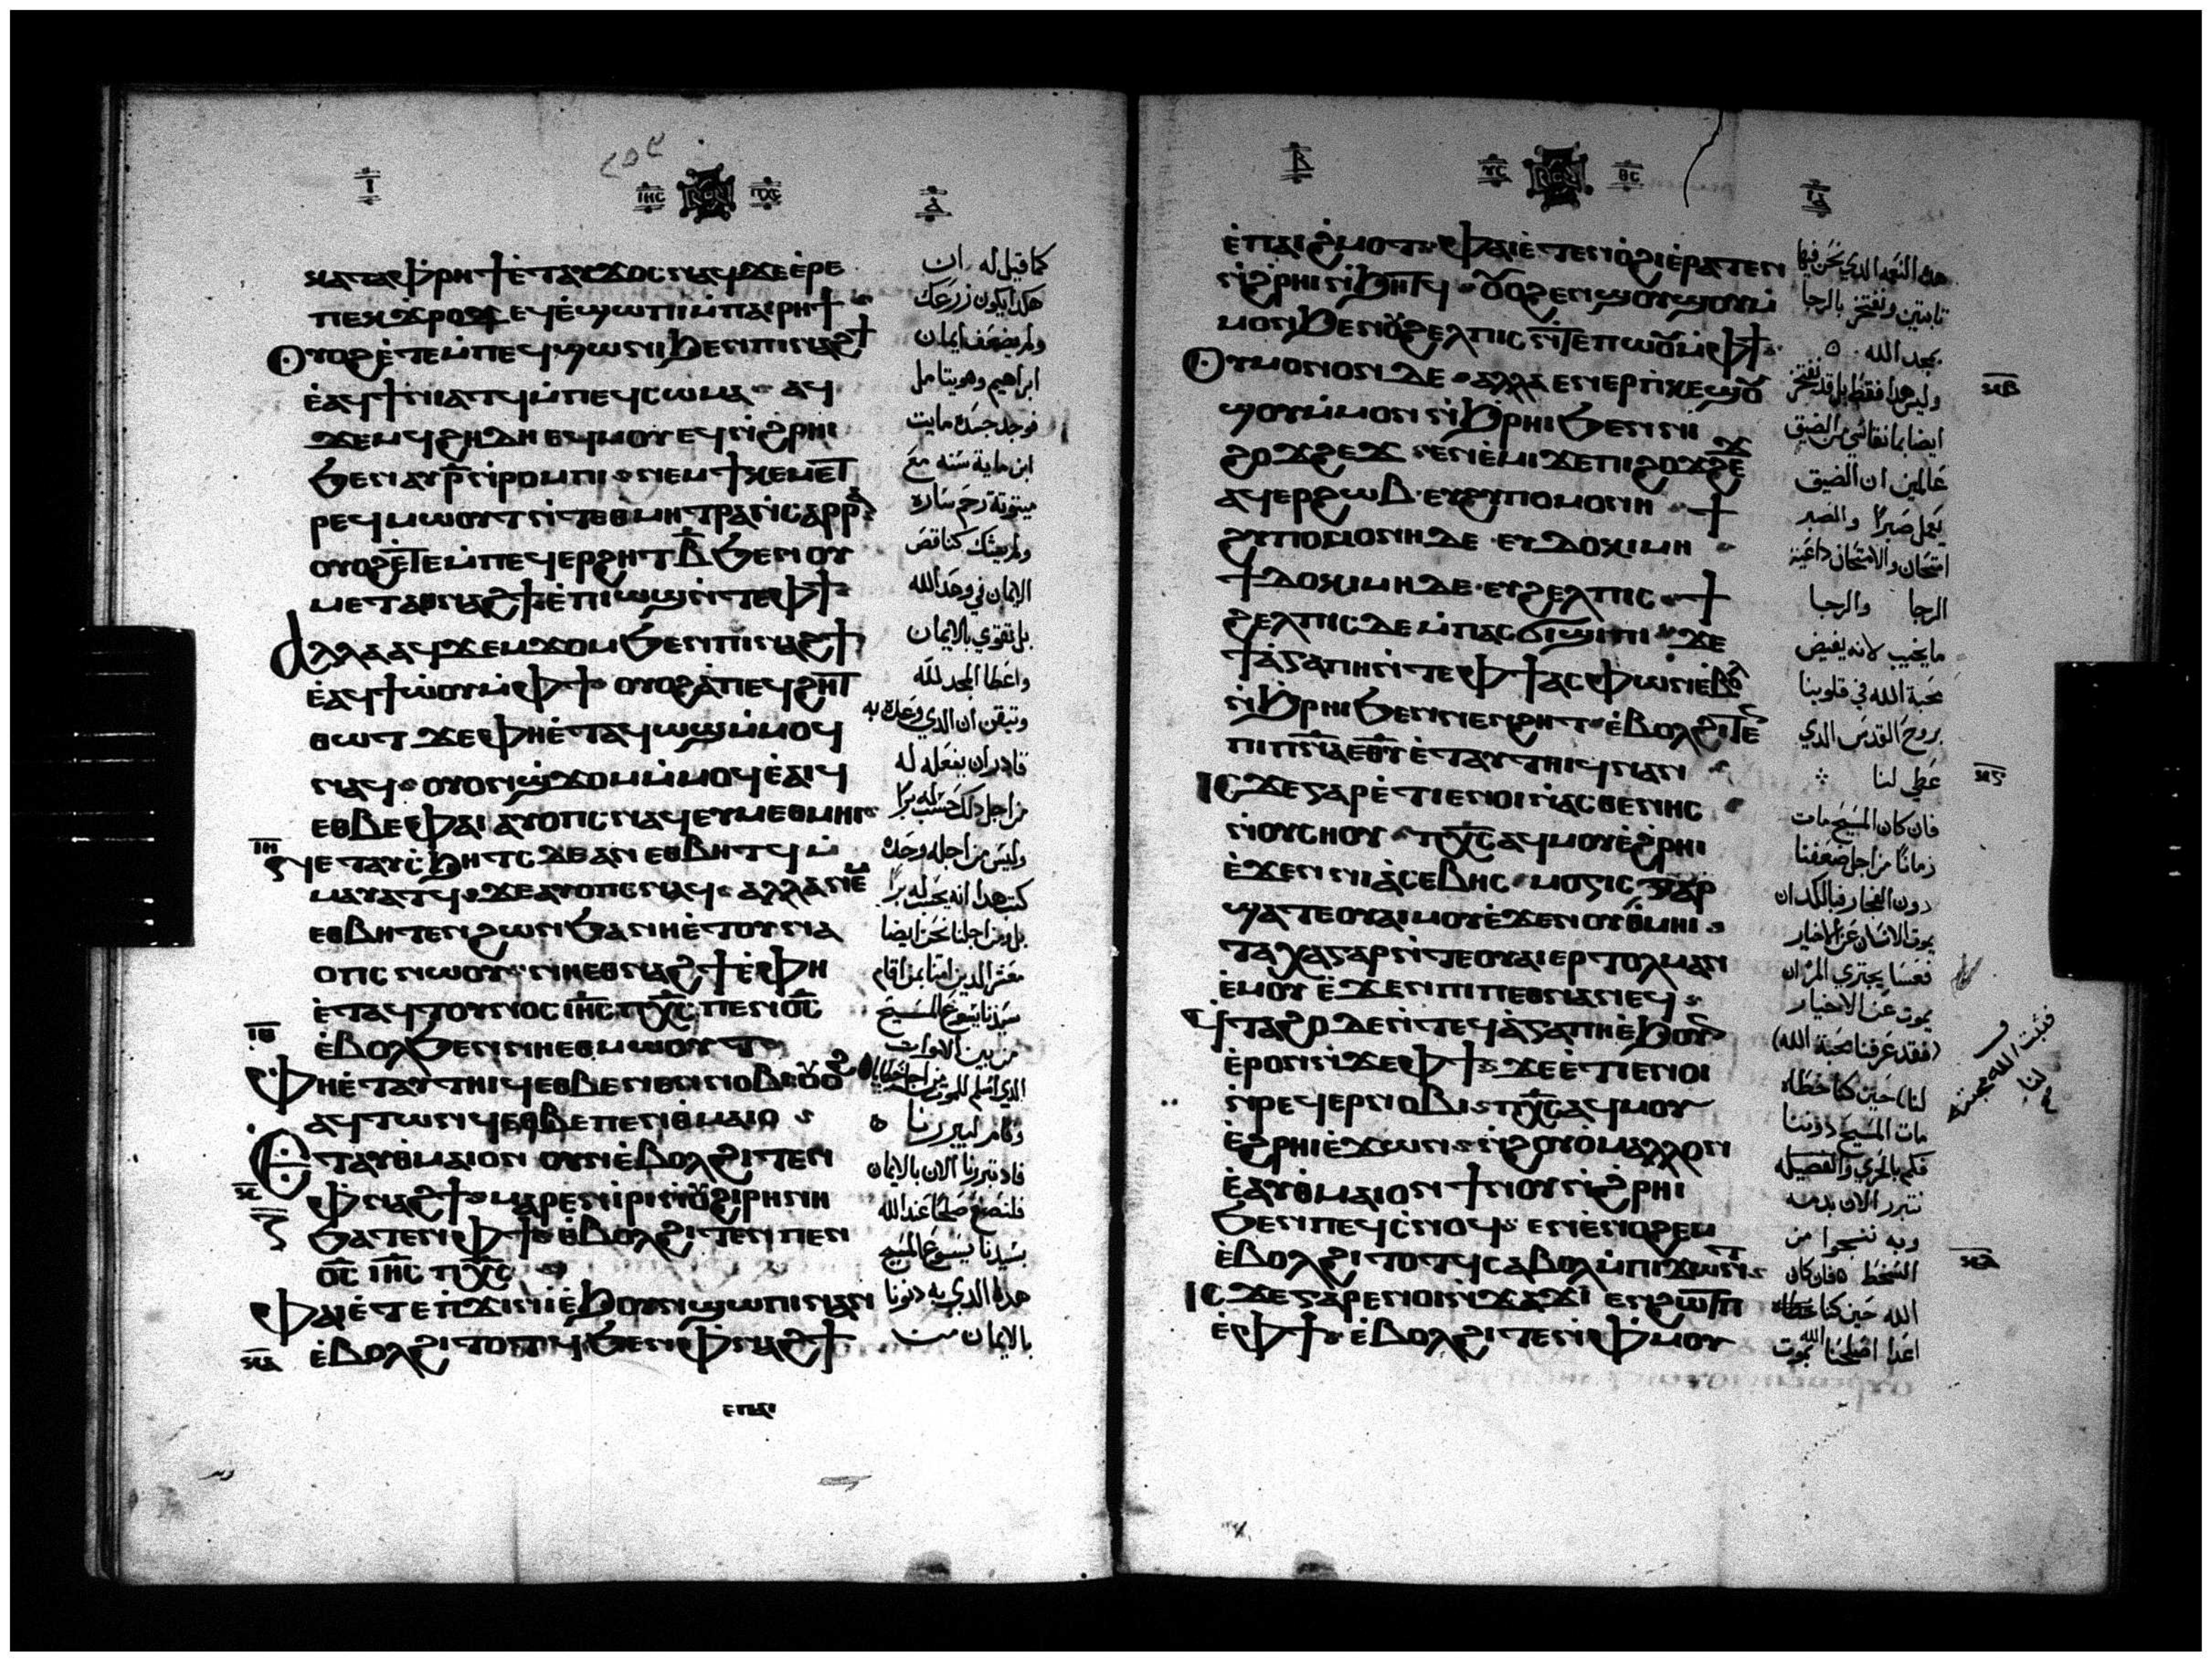 ⲓ ⲓⲏⲥ ⲡⲭⲥ ⲇ
ⲕⲁⲧⲁⲫⲣⲏϯⲉ̀ⲧⲁⲩϫⲟⲥⲛⲁϥϫⲉⲉ̀ⲣⲉ
ⲡⲉⲕϫⲣⲟϫⲉϥⲉ̀ϣⲱⲡⲓⲙ̀ⲡⲁⲓⲣⲏϯ
ⲟⲩⲟϩⲉ̀ⲧⲉⲙ̀ⲡⲉϥϣⲱⲛⲓϧⲉⲛⲡⲓⲛⲁϩϯ
ⲉ̀ⲁϥϯⲛⲓⲁⲧϥⲙ̀ⲡⲉϥⲥⲱⲙⲁ ⲁϥ
ϫⲉⲙϥϩⲏⲇⲏⲉⲁϥⲙⲟⲩⲉϥⲛ̀ϩⲣⲏⲓ
ϧⲉⲛⲁⲩⲣ̅ⲛ̀ⲣⲟⲙⲡⲓ ⲛⲉⲙϯⲕⲉⲙⲉⲧ
ⲣⲉϥⲙⲱⲟⲩⲧⲛ̀ⲧⲉⲑⲙⲏⲧⲣⲁⲛ̀ⲥⲁⲣⲣⲁ
ⲟⲩⲟϩⲉ̀ⲧⲉⲙ̀ⲡⲉϥⲉⲣϩⲏⲧⲃ̅ϧⲉⲛⲟⲩ
ⲙⲉⲧⲁⲑⲛⲁϩϯⲉ̀ⲡⲓⲱϣⲛ̀ⲧⲉⲫϯ
ⲁⲗⲗⲁⲁϥϫⲉⲙϫⲟⲙϧⲉⲛⲡⲓⲛⲁϩϯ
ⲉ̀ⲁϥϯⲱ̀ⲟⲩⲙ̀ⲫϯ ⲟⲩⲟϩⲁ̀ⲡⲉϥϩⲏⲧ
ⲑⲱⲧ ϫⲉⲫⲏⲉ̀ⲧⲁϥⲱϣⲙ̀ⲙⲟϥ
ⲛⲁϥ ⲟⲩⲟⲛϣϫⲟⲙⲙ̀ⲙⲟϥⲉ̀ⲁⲓϥ
ⲉⲑⲃⲉⲫⲁⲓ ⲁⲩⲟⲡⲥⲛⲁϥⲉⲩⲙⲉⲑⲙⲏⲓ
ⲓⲏ ⲛⲉⲧⲁⲩⲥϧⲏⲧⲥⲇⲉⲁⲛ ⲉⲑⲃⲏⲧϥⲙ̀
ⲙⲁⲩⲁⲧϥ ϫⲉⲁⲩⲟⲡⲥⲛⲁϥ ⲁⲗⲗⲁⲛⲉⲙ
ⲉⲑⲃⲏⲧⲉⲛϩⲱⲛϧⲁⲛⲏⲉ̀ⲧⲟⲩⲛⲁ
ⲟⲡⲥ ⲛⲱⲟⲩ ⲛⲏⲉⲑⲛⲁϩϯⲉ̀ⲫⲏ
ⲉ̀ⲧⲁϥⲧⲟⲩⲛⲟⲥ ⲓⲏⲥ ⲡⲭⲥ ⲡⲉⲛⲟⲥ
ⲓⲑ ⲉ̀ⲃⲟⲗϧⲉⲛⲛⲏⲉⲑⲙⲱⲟⲩⲧ
ⲫⲏⲉ̀ⲧⲁⲩⲧⲏⲓϥⲉⲑⲃⲉⲛⲉⲛⲛⲟⲃⲓ ⲟⲩⲟϩ
ⲁϥⲧⲱⲛϥⲉⲑⲃⲉⲡⲉⲛⲑⲙⲁⲓⲟ
ⲉⲧⲁⲩⲑⲙⲁⲓⲟⲛ ⲟⲩⲛⲉ̀ⲃⲟⲗϩⲓⲧⲉⲛ
ⲕ ⲫⲛⲁϩϯ ⲙⲁⲣⲉⲛⲓ̀ⲣⲓⲛ̀ⲟⲩϩⲓⲣⲏⲛⲏ
ϧⲁⲧⲉⲛⲫϯ ⲉ̀ⲃⲟⲗϩⲓⲧⲉⲛⲡⲉⲛ
ⲟⲥ ⲓⲏⲥ ⲡⲭⲥ
ⲫⲁⲓⲉ̀ⲧⲉⲡϫⲓⲛⲓ̀ⲉ̀ϧⲟⲩⲛϣⲱⲡⲓⲛⲁⲛ
ⲕⲁ ⲉ̀ⲃⲟⲗϩⲓⲧⲟⲧϥϧⲉⲛⲫⲛⲁϩϯ
ⲉⲡⲁⲓ
كما قيل له ان
هكذا يكون زرعك
ولم يضعف ايمان
ابراهيم وهو يتامل
فوجد جسده مايت
ابن ماية سنة مع
ميتوتة رحم سارة
ولم يشك كناقص
الايمان في وعد الله
بل تقوي بالايمان
واعطا المجد لله
وتيقن ان الذي وعده به
قادر ان يفعله له
من اجل ذلك حسب له برا
وليس من اجله وحده
كتب هذا انه يحسب له برا
بل ومن اجلنا نحن ايضا
معشر الذين امنا بمن اقام
سيدنا يسوع المسيح
من بين الاموات
الذي اسلم للموت من اجل خطايانا
وقام ليبررنا
فاد تبررنا الان بالايمان
فلنصنع صلحا عند الله
بسيدنا يسوع المسيح
هذا الذي به دنونا
بالايمان من
ⲃ ⲩⲥ ⲑⲥ ⲓⲇ
ⲉ̀ⲡⲁⲓϩⲙⲟⲧ ⲫⲁⲓⲉ̀ⲧⲉⲛⲟ̀ϩⲓⲉ̀ⲣⲁⲧⲉⲛ
ⲛ̀ϩⲣⲏⲓⲛ̀ϧⲏⲧϥ ⲟⲩⲟϩⲉⲛϣⲟⲩϣⲟⲩⲙ̀
ⲙⲟⲛϧⲉⲛⲟⲩϩⲉⲗⲡⲓⲥⲛ̀ⲧⲉⲡⲱⲟⲩⲙ̀ⲫϯ
ⲟⲩⲙⲟⲛⲟⲛ ⲇⲉ ⲁⲗⲗⲁⲉⲛⲉⲣⲡⲕⲉϣⲟⲩ
ϣⲟⲩⲙ̀ⲙⲟⲛⲛ̀ϧⲣⲏⲓϧⲉⲛⲛⲓ
ϩⲟϫϩⲉϫ ⲉⲛⲉ̀ⲙⲓϫⲉⲡⲓϩⲟϫϩⲉϫ
ⲁϥⲉⲣϩⲱⲃ ⲉⲩϩⲩⲡⲟⲙⲟⲛⲏ ϯ
ϩⲩⲡⲟⲙⲟⲛⲏⲇⲉ ⲉⲩⲇⲟⲕⲓⲙⲏ
ϯⲇⲟⲕⲓⲙⲏⲇⲉ ⲉⲩϩⲉⲗⲡⲓⲥ ϯ
ϩⲉⲗⲡⲓⲥⲇⲉⲙ̀ⲡⲁⲥϭⲓϣⲓⲡⲓ ϫⲉ
ϯⲁ̀ⲅⲁⲡⲏⲛ̀ⲧⲉⲫϯⲁⲥⲫⲱⲛⲉ̀ⲃⲟⲗ
ⲛ̀ϧⲣⲏⲓϧⲉⲛⲛⲉⲛϩⲏⲧ ⲉ̀ⲃⲟⲗϩⲓⲧⲉⲛ
ⲡⲓⲡⲛⲁⲉⲑⲩ ⲉ̀ⲧⲁⲩⲧⲏⲓϥⲛⲁⲛ
ⲓⲥϫⲉⲅⲁⲣⲉ̀ⲧⲓⲉⲛⲟⲓⲛ̀ⲁⲥⲑⲉⲛⲏⲥ
ⲛ̀ⲟⲩⲥⲏⲟⲩ ⲡⲭⲥⲁϥⲙⲟⲩⲉ̀ϩⲣⲏⲓ
ⲉ̀ϫⲉⲛⲛⲓⲁ̀ⲥⲉⲃⲏⲥ ⲙⲟⲅⲓⲥ ⲅⲁⲣ
ϣⲁⲧⲉⲟⲩⲁⲓⲙⲟⲩⲉ̀ϫⲉⲛⲟⲩⲑⲙⲏⲓ
ⲧⲁⲭⲁⲅⲁⲣⲛ̀ⲧⲉⲟⲩⲁⲓⲉⲣⲧⲟⲗⲙⲁⲛ
ⲉ̀ⲙⲟⲩ ⲉ̀ϫⲉⲛⲡⲓⲡⲉⲑⲛⲁⲛⲉϥ
ϥⲧⲁϩⲟ ⲇⲉⲛ̀ⲧⲉϥⲁ̀ⲅⲁⲡⲏⲉ̀ϧⲟⲩⲛ
ⲉ̀ⲣⲟⲛⲛ̀ϫⲉⲫϯ ϫⲉⲉ̀ⲧⲓⲉⲛⲟⲓ
ⲛ̀ⲣⲉϥⲉⲣⲛⲟⲃⲓ ⲡⲭⲥⲁϥⲙⲟⲩ
ⲉ̀ϩⲣⲏⲓⲉ̀ϫⲱⲛ ⲛ̀ϩⲟⲩⲟ̀ⲙⲁⲗⲗⲟⲛ
ⲉ̀ⲁⲩⲑⲙⲁⲓⲟⲛ ϯⲛⲟⲩⲛ̀ϩⲣⲏⲓ
ϧⲉⲛⲡⲉϥⲥ̀ⲛⲟϥ ⲉⲛⲉ̀ⲛⲟϩⲉⲙ
ⲉ̀ⲃⲟⲗϩⲓⲧⲟⲧϥⲥⲁⲃⲟⲗⲙ̀ⲡⲓϫⲱⲛⲧ
ⲓⲥϫⲉⲅⲁⲣⲉⲛⲟⲓⲛ̀ϫⲁϫⲓ ⲉⲛϩⲱⲧⲡ
ⲉ̀ⲫϯ ⲉ̀ⲃⲟⲗϩⲓⲧⲉⲛⲫⲙⲟⲩ
هذه النعمة الذي نحن فيها
ثابتين ونفتخر بالرجا
بمجد الله
وليس هذا فقط بل قد نفتخر
ⲕⲃ
ايضا بما نقاسي من الضيق
عالمين ان الضيق
يعمل صبرا والصبر
امتحان والامتحان داعية
الرجا والرجا
ما يخيب لانه يفيض
محبة الله في قلوبنا
بروح القدس الذي
عطي لنا
ⲕⲅ
فان كان المسيح مات
زمانا من اجل ضعفنا
دون الفجار فبالكد ان
يموت الانسان عن الاخيار
فعسا يجتري المر ان
يموت عن الاخيار
(فقد عرفنا محبة الله)
لنا حين كنا خطاه
مات المسيح دوننا
فكم بالحري والفضيلة
نتبرر الان بدمه
وبه ننجوا من
السخط فان كان
ⲕⲇ
الله حين كنا خطاه
اعدا اصلحنا الله بموت
فثبت الله محبته
لنا